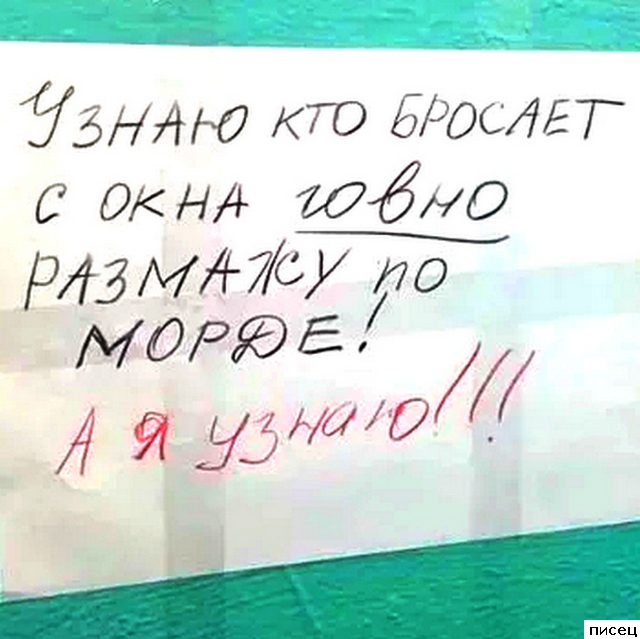 Узнаю кто БРОСАЕТ
с окна говно
РАЗМАЖУ по
МОРДЕ!
А я узнаю!!!
писец